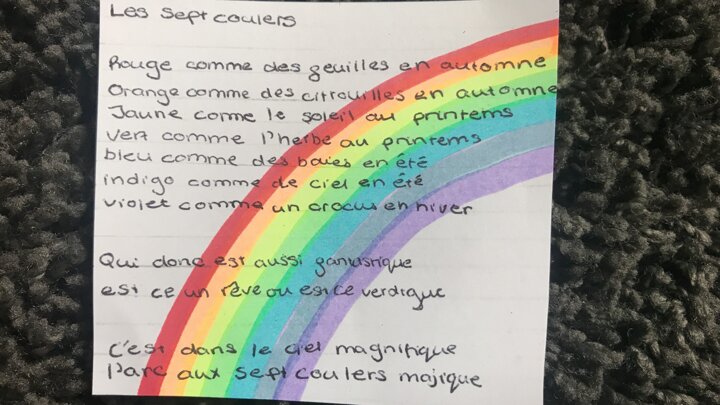 Les sept coulers
Rouge comme des geuilles en automne
Orange comme des citrouilles en automne
Jaune corme le soleil au printems
vert comme l'herbe au printems
bleu comme des baies en été
indigo comme de ciel en été
violet comme un crocus en hiver
Qui donc est aussi gantastique
est ce un rêve ou est ce verdique
C'est dans le ciel magnifique
l'arc aux sept coulers majique